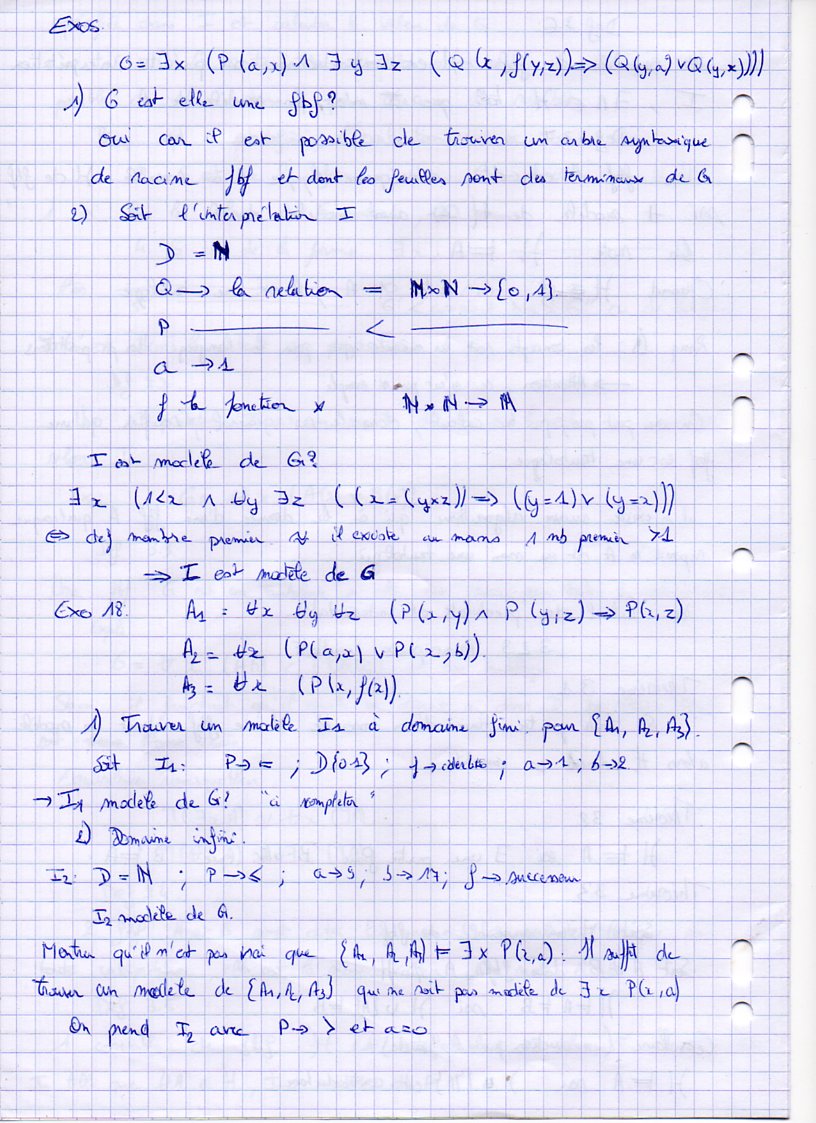 Exos.
G = ∃x (P(a,x) ∧ ∃y ∃z (Q(x, f(y,z)) ⇒ (Q(y,a) ∨ Q(y,x))))
1) G est elle une fbf?
oui car il est possible de trouver un arbre syntaxique
de racine fbf et dont les feuilles sont des terminaux de G
2) Soit l'interprétation I
D = ℕ
Q → la relation = ℕ×ℕ → {0,1}.
P ——— < ———
a → 1
f la fonction × ℕ×ℕ → ℕ
I est modèle de G?
∃x (1<x ∧ ∀y ∃z ((x = (y×z)) ⇒ ((y=1) ∨ (y=x))))
⇔ def nombre premier il existe au moins 1 nb premier >1
⇒ I est modèle de G
Exo 18. A1 = ∀x ∀y ∀z (P(x,y) ∧ P(y,z) ⇒ P(x,z)
A2 = ∀x (P(a,x) ∨ P(x,b)).
A3 = ∀x (P(x, f(x)).
1) Trouver un modèle I1 à domaine fini pour {A1, A2, A3}.
Soit I1: P → = ; D{0 1} ; f → identité ; a → 1 ; b → 2
→ I1 modèle de G? "à completer"
2) Domaine infini.
I2: D = ℕ ; P → ≤ ; a → 5 ; b → 17 ; f → successeur
I2 modèle de G.
Montrer qu'il n'est pas vrai que {A1, A2, A3} ⊨ ∃x P(x,a) : Il suffit de
trouver un modèle de {A1, A2, A3} qui ne soit pas modèle de ∃x P(x,a)
On prend I2 avec P → > et a=0